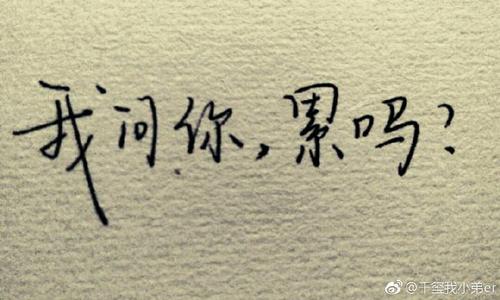 我问你,累吗?
@千玺我小弟er